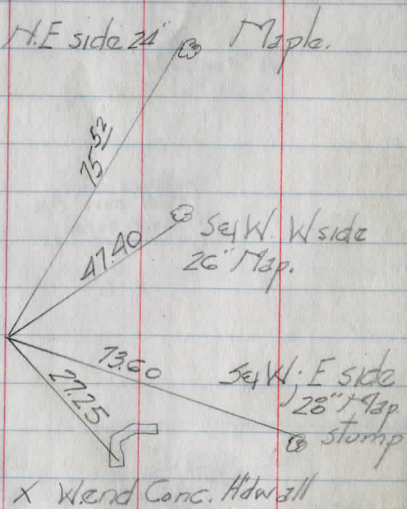 N.E side 24" Maple.
75 52
47.40
S&W. W side
26" Map.
73.60
S&W; E side
28" Map.
stump
27.25
X W.end Conc. Hdwall